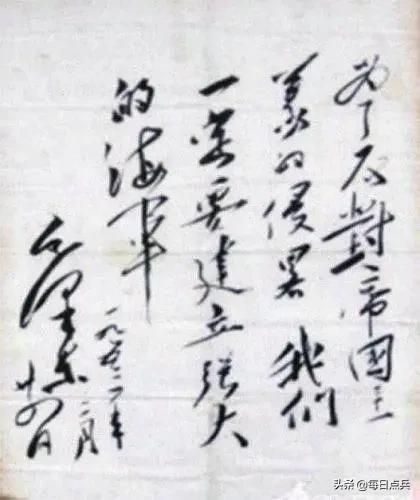 为了反對帝國主
義的侵畧 我們
一定要建立强大
的海軍
毛澤東
一九五三年
二月
廿四日
头条 @每日点兵